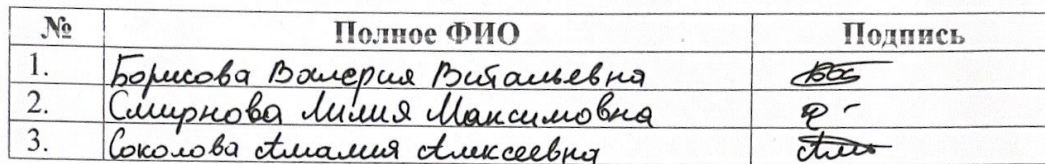 № Полное ФИО Подпись
1. Борисова Валерия Витальевна
2. Смирнова Лилия Максимовна
3. Соколова Амалия Алексеевна